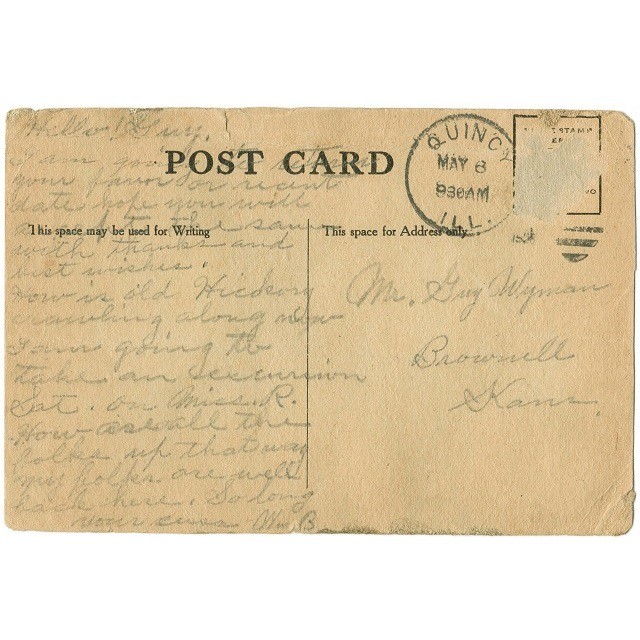 Hello! Guy.
I am going to return
your favor of recent
date hope you will
accept the same
with thanks and
best wishes.
How is old Hickory
crawling along now
I am going to
take an excursion
Sat. on Miss. R.
How are all the
folks up that way
my folks are well
back here. So long
your
POST CARD
This space may be used for Writing
This space for Address only
QUINCY
MAY 6
930AM
ILL.
STAMP
Mr. Guy Wyman
Brownell
Kans.